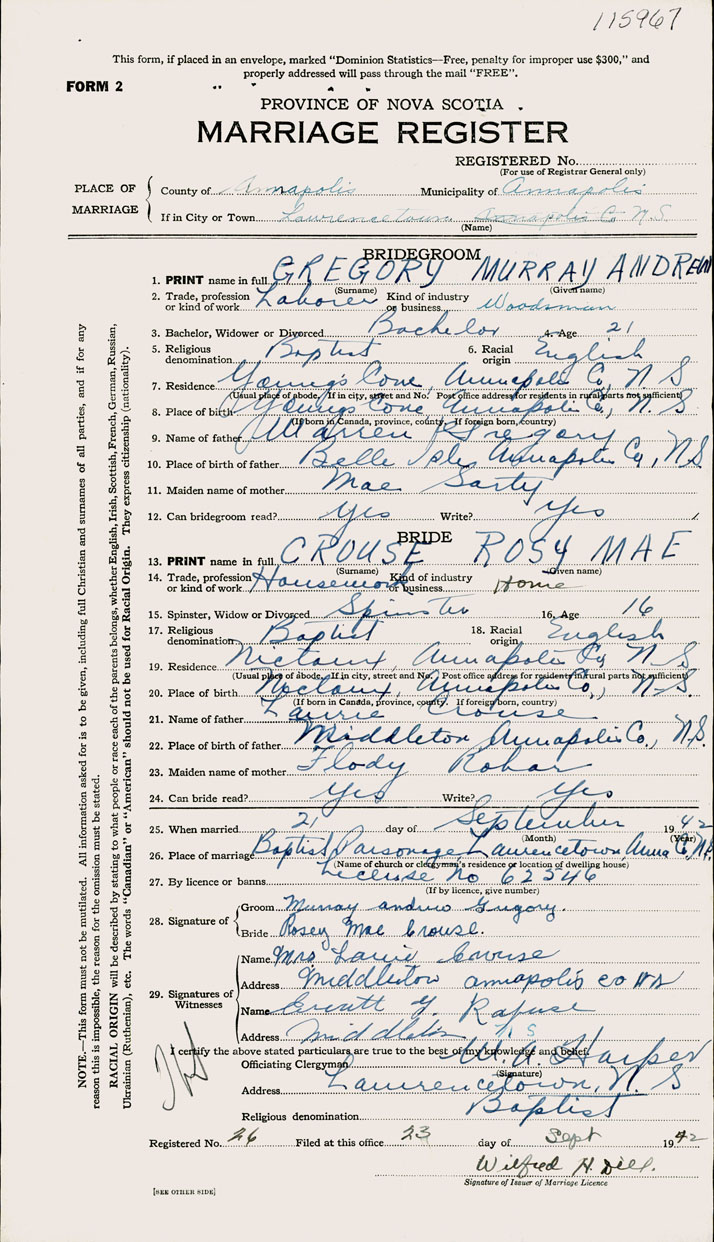 115967
This form, if placed in an envelope, marked "Dominion Statistics—Free, penalty for improper use $300," and
properly addressed will pass through the mail "FREE".
FORM 2
PROVINCE OF NOVA SCOTIA
MARRIAGE REGISTER
REGISTERED No.
(For use of Registrar General only)
PLACE OF MARRIAGE
County of Annapolis Municipality of Annapolis
If in City or Town Lawrencetown Annapolis Co N.S.
(Name)
BRIDEGROOM
1. PRINT name in full GREGORY MURRAY ANDREW
(Surname) (Given name)
2. Trade, profession or kind of work Laborer Kind of industry or business Woodsman
3. Bachelor, Widower or Divorced Bachelor 4. Age 21
5. Religious denomination Baptist 6. Racial origin English
7. Residence Young's Cove, Annapolis Co, N S
(Usual place of abode. If in city, street and No. Post office address for residents in rural parts not sufficient)
8. Place of birth Young's Cove Annapolis Co, N. S
(If born in Canada, province, county. If foreign born, country)
9. Name of father Warren Gregory
10. Place of birth of father Belle Isle, Annapolis Co, N.S
11. Maiden name of mother Mae Sarty
12. Can bridegroom read? Yes Write? Yes
BRIDE
13. PRINT name in full CROUSE ROSY MAE
(Surname) (Given name)
14. Trade, profession or kind of work Housework Kind of industry or business Home
15. Spinster, Widow or Divorced Spinster 16. Age 16
17. Religious denomination Baptist 18. Racial origin English
19. Residence Nictaux, Annapolis Co N S
(Usual place of abode. If in city, street and No. Post office address for residents in rural parts not sufficient)
20. Place of birth Nictaux, Annapolis Co, N.S
(If born in Canada, province, county. If foreign born, country)
21. Name of father Laurie Crouse
22. Place of birth of father Middleton Annapolis Co., N.S.
23. Maiden name of mother Flody Rohar
24. Can bride read? Yes Write? Yes
25. When married 21 day of September 1942
(Month) (Year)
26. Place of marriage Baptist Parsonage, Lawrencetown, Anna Co, N.S.
(Name of church or clergyman's residence or location of dwelling house)
27. By licence or banns License No 62546
(If by licence, give number)
28. Signature of
Groom Murray andrew Gregory.
Bride Rosey Mae Crouse.
29. Signatures of Witnesses
Name Mrs Laurie Crouse
Address Middleton annapolis co NS
Name Rafuse
Address Middleton N S
I certify the above stated particulars are true to the best of my knowledge and belief.
Officiating Clergyman Harper
(Signature)
Address Lawrencetown, N. S
Religious denomination Baptist
Registered No. 26 Filed at this office 23 day of Sept 1942
Wilfred H. Dell.
Signature of Issuer of Marriage Licence
[SEE OTHER SIDE]
NOTE.—This form must not be mutilated. All information asked for is to be given, including full Christian and surnames of all parties, and if for any
reason this is impossible, the reason for the omission must be stated.
RACIAL ORIGIN will be described by stating to what people or race each of the parents belongs, whether English, Irish, Scottish, French, German, Russian,
Ukrainian (Ruthenian), etc. The words "Canadian" or "American" should not be used for Racial Origin. They express citizenship (nationality).